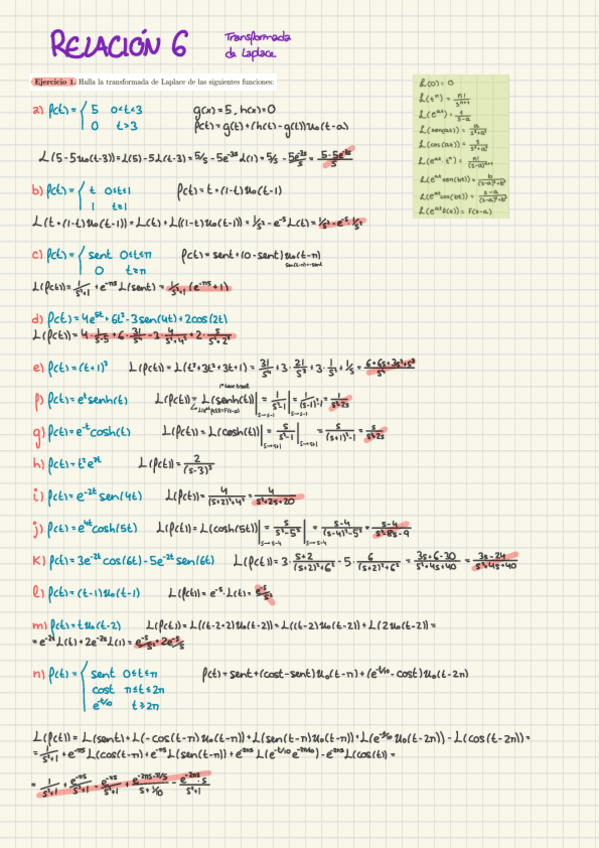 RELACIÓN 6
Transformada de Laplace
Ejercicio 1. Halla la transformada de Laplace de las siguientes funciones:
L(0) = 0
L(tⁿ) = n!/sⁿ⁺¹
L(e^at) = 1/(s-a)
L(cos(at)) = s/(s²+a²)
L(e^at f(t)) = F(s-a)
a) f(t) = { 5 0≤t<3
0 t≥3
g(x) = 5, h(x) = 0
f(t) = g(t) + (h(t) - g(t)) u₀(t-a)
L(5-5u₀(t-3)) = L(5) - 5L(t-3) = 5/s - 5e^-3s L(1) = 5/s - 5e^-3s/s = (5-5e^-3s)/s
b) f(t) = { t 0≤t<1
1 t≥1
f(t) = t + (1-t) u₀(t-1)
L(t + (1-t) u₀(t-1)) = L(t) + L((1-t) u₀(t-1)) = 1/s² - e^-s L(t) = 1/s² - e^-s · 1/s²
c) f(t) = { sent 0≤t≤π
0 t≥π
f(t) = sent + (0-sent) u₀(t-π)
sen(t-π) = -sent
L(f(t)) = 1/(s²+1) + e^-πs L(sent) = 1/(s²+1) (e^-πs + 1)
d) f(t) = 4e^5t + 6t³ - 3sen(4t) + 2cos(2t)
L(f(t)) = 4 · 1/(s-5) + 6 · 3!/s⁴ - 3 · 4/(s²+4²) + 2 · s/(s²+2²)
e) f(t) = (t+1)³ L(f(t)) = L(t³+3t²+3t+1) = 3!/s⁴ + 3 · 2!/s³ + 3 · 1/s² + 1/s = (6+6s+3s²+s³)/s⁴
f) f(t) = e^t senh(t) L(f(t)) = L(senh(t))| s→s-1 = 1/(s²-1)| s→s-1 = 1/((s-1)²-1) = 1/(s²-2s)
g) f(t) = e^-t cosh(t) L(f(t)) = L(cosh(t))| s→s+1 = s/(s²-1)| s→s+1 = s/((s+1)²-1) = s/(s²+2s)
h) f(t) = t²e^3t L(f(t)) = 2/(s-3)³
i) f(t) = e^-2t sen(4t) L(f(t)) = 4/((s+2)²+4²) = 4/(s²+2s+20)
j) f(t) = e^4t cosh(5t) L(f(t)) = L(cosh(5t))| s→s-4 = s/(s²-5²)| s→s-4 = (s-4)/((s-4)²-5²) = (s-4)/(s²-8s-9)
k) f(t) = 3e^-2t cos(6t) - 5e^-2t sen(6t) L(f(t)) = 3 · (s+2)/((s+2)²+6²) - 5 · 6/((s+2)²+6²) = (3s+6-30)/(s²+4s+40) = (3s-24)/(s²+4s+40)
l) f(t) = (t-1) u₀(t-1) L(f(t)) = e^-s · L(t) = e^-s/s²
m) f(t) = t u₀(t-2) L(f(t)) = L((t-2+2) u₀(t-2)) = L((t-2) u₀(t-2)) + L(2u₀(t-2)) =
= e^-2s L(t) + 2e^-2s L(1) = e^-s/s² + 2e^-s/s
n) f(t) = { sent 0≤t≤π
cost π≤t≤2π
e^-t/10 t≥2π
f(t) = sent + (cost-sent) u₀(t-π) + (e^-t/10 - cost) u₀(t-2π)
L(f(t)) = L(sent) + L(-cos(t-π) u₀(t-π)) + L(sen(t-π) u₀(t-π)) + L(e^-t/10 u₀(t-2π)) - L(cos(t-2π)) =
= 1/(s²+1) + e^-πs L(cos(t-π)) + e^-πs L(sen(t-π)) + e^-2πs L(e^-t/10 e^-2π/10) - e^-2πs L(cos(t)) =
= 1/(s²+1) + e^-πs/(s²+1) - e^-πs/(s²+1) + e^-2πs-π/5/(s+1/10) - e^-2πs · s/(s²+1)